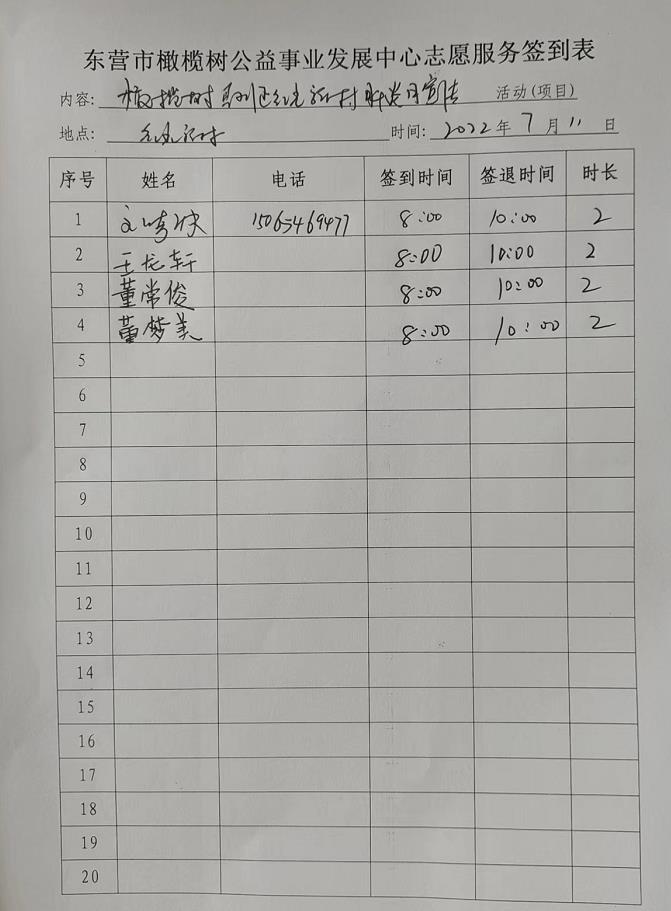 东营市橄榄树公益事业发展中心志愿服务签到表
内容: 橄榄树 活动(项目)
地点: 村 时间: 2022年 7月 11日
序号 姓名 电话 签到时间 签退时间 时长
1 15065469477 8:00 10:00 2
2 王龙轩 8:00 10:00 2
3 董常俊 8:00 10:00 2
4 董梦美 8:00 10:00 2
5
6
7
8
9
10
11
12
13
14
15
16
17
18
19
20